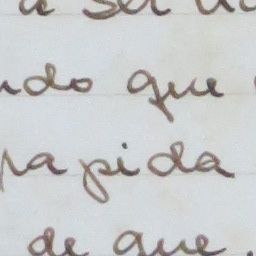 a ser
ndo que
rapida
de que